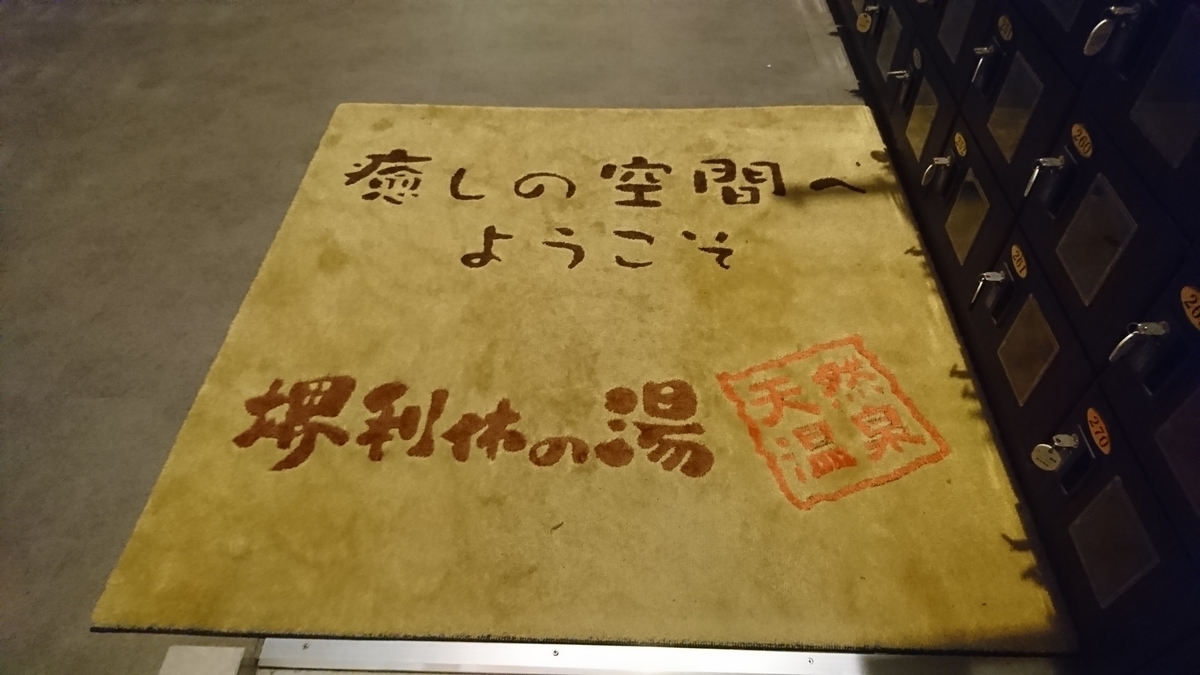 癒しの空間へ
ようこそ
堺利休の湯
天然
温泉
260
261
270